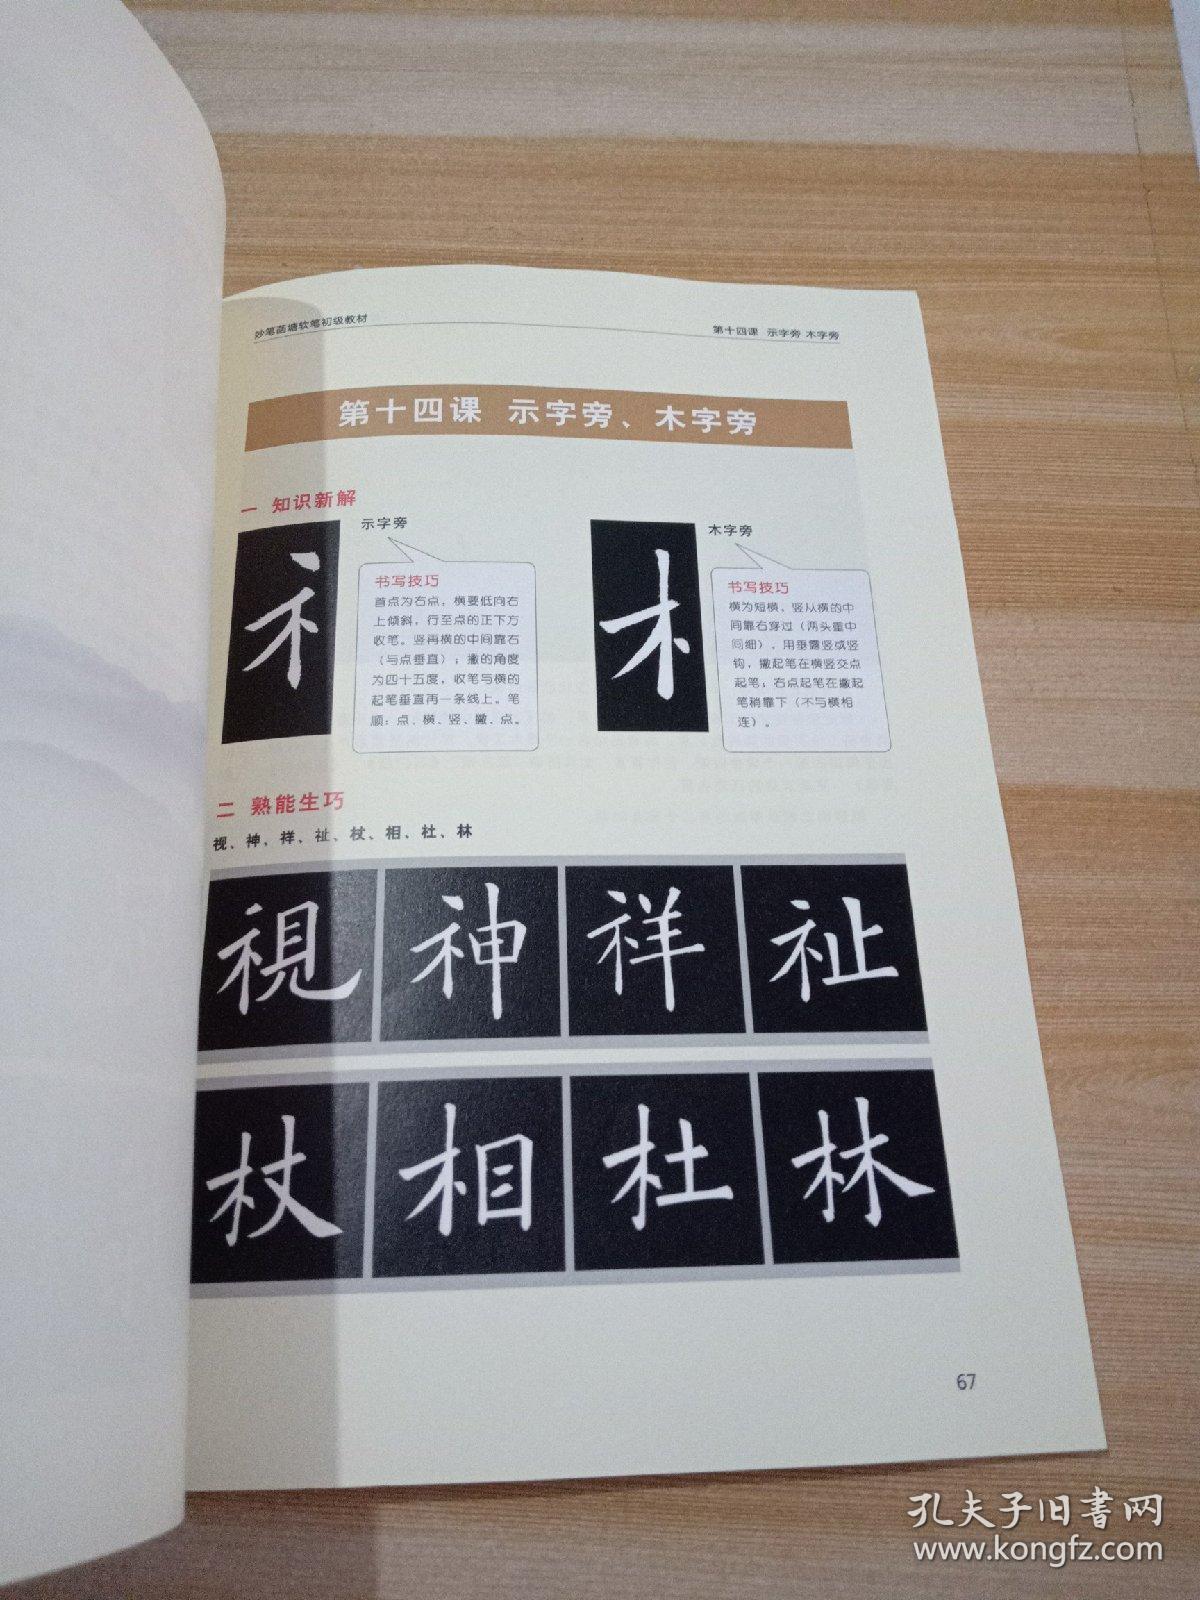 妙笔菡塘软笔初级教材
第十四课 示字旁 木字旁
第十四课 示字旁、木字旁
一 知识新解
示字旁
书写技巧
首点为右点，横要低向右
上倾斜，行至点的正下方
收笔。竖再横的中间靠右
（与点垂直）；撇的角度
为四十五度，收笔与横的
起笔垂直再一条线上。笔
顺：点、横、竖、撇、点。
木字旁
书写技巧
横为短横、竖从横的中
间靠右穿过（两头重中
间细），用垂露竖或竖
钩，撇起笔在横竖交点
起笔；右点起笔在撇起
笔稍靠下（不与横相
连）。
礻
木
二 熟能生巧
视、神、祥、祉、杖、相、杜、林
視 神 祥 祉
杖 相 杜 林
67
孔夫子旧书网
www.kongfz.com